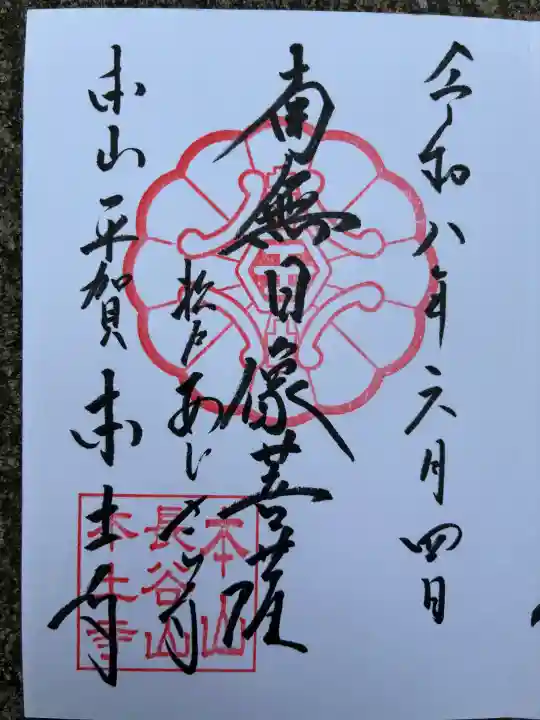 令和八年六月四日
南無日像菩薩
松戸あじさい寺
本山 平賀 本土寺
本山
長谷山
本土寺